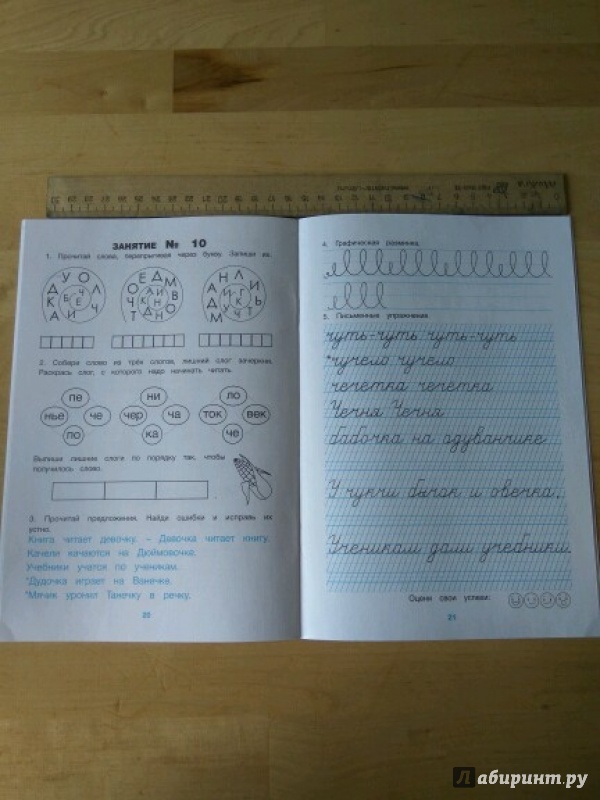 ЗАНЯТИЕ № 10
1. Прочитай слова, перепрыгивая через букву. Запиши их.
2. Собери слово из трёх слогов, лишний слог зачеркни.
Раскрась слог, с которого надо начинать читать.
пе
ни
ло
нье
че
чер
ча
ток
век
по
ка
че
Выпиши лишние слоги по порядку так, чтобы
получилось слово.
3. Прочитай предложения. Найди ошибки и исправь их
устно.
Книга читает девочку. – Девочка читает книгу.
Качели качаются на Дюймовочке.
Учебники учатся по ученикам.
*Дудочка играет на Ванечке.
*Мячик уронил Танечку в речку.
20
4. Графическая разминка.
5. Письменные упражнения.
чуть-чуть чуть-чуть
*чучело чучело
чечётка чечётка
Чечня Чечня
бабочка на одуванчике
У чукчи бычок и овечка.
Ученикам дали учебники.
Оцени свои успехи:
21
абиринт.ру